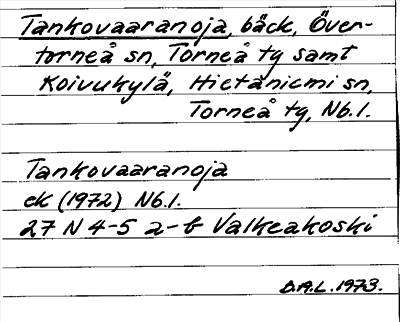 Tankovaaranoja, bäck, Över-
torneå sn, Torneå tg samt
Koivukylä, Hietaniemi sn,
Torneå tg, Nb.l.
Tankovaaranoja
ek (1972) Nb.l.
27 N 4-5 a-b Valkeakoski
D.A.L. 1973.